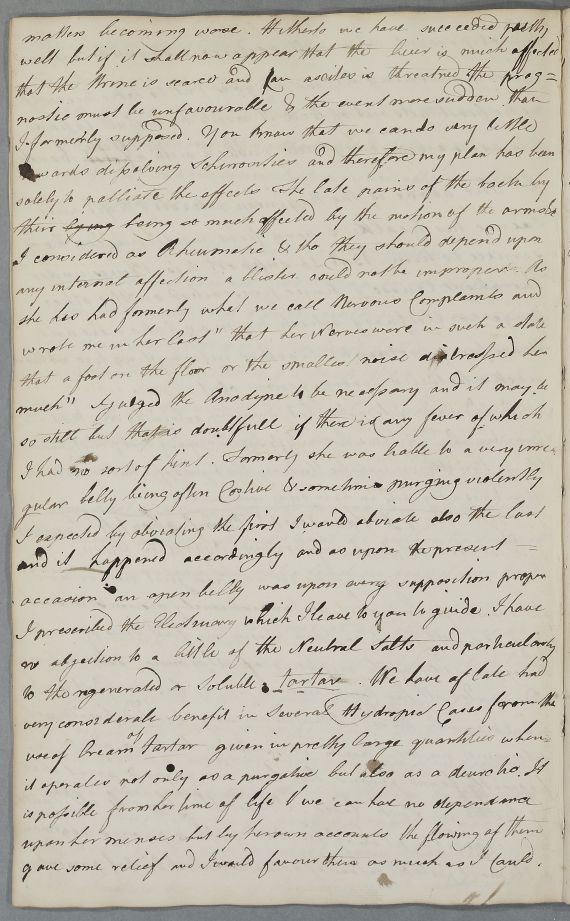 matters becoming worse. Hitherto we have succeeded pretty
well but if it shall now appear that the liver is much affected
that the Urine is scarce and an ascites is threatned the prog=
nostic must be unfavourable & the event more sudden than
I formerly supposed. You know that we can do very little
towards dissolving Schirrosities and therefore my plan has been
solely to palliate the effects The late pains of the back by
their being so much affected by the motion of the arms
I considered as Rheumatic & tho they should depend upon
any internal affection a blister could not be improper. As
she has had formerly what we call Nervous Complaints and
wrote me in her last " that her Nerves were in such a state
that a foot on the floor or the smallest noise distressed her
much" I judged the Anodyne to be necessary and it may be
so still but that is doubtfull if there is any fever of which
I had no sort of hint. Formerly she was liable to a very irre
gular belly being often Costive & sometimes purging violently
I expected by obviating the first I would obviate also the last
and it happened accordingly and as upon the present =
occasion an open belly was upon every supposition proper
I prescribed the Electuary which I leave to you to guide. I have
no objection to a little of the Neutral Salts and particularly
to the regenerated or Soluble tartare. We have of late had
very considerale benefit in several Hydropic Cases from the
use of Cream of tartar given in pretty large quantities when
it operates not only as a purgative but also as a deuretic. It
is possible from her time of life that we can have no dependance
upon her menses but by her own accounts the flowing of them
gave some relief and I would favour them as much as I could.